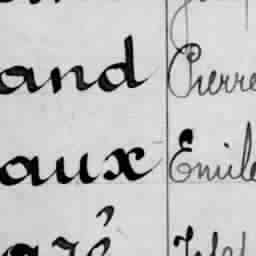 and Pierre
aux Emile
aré